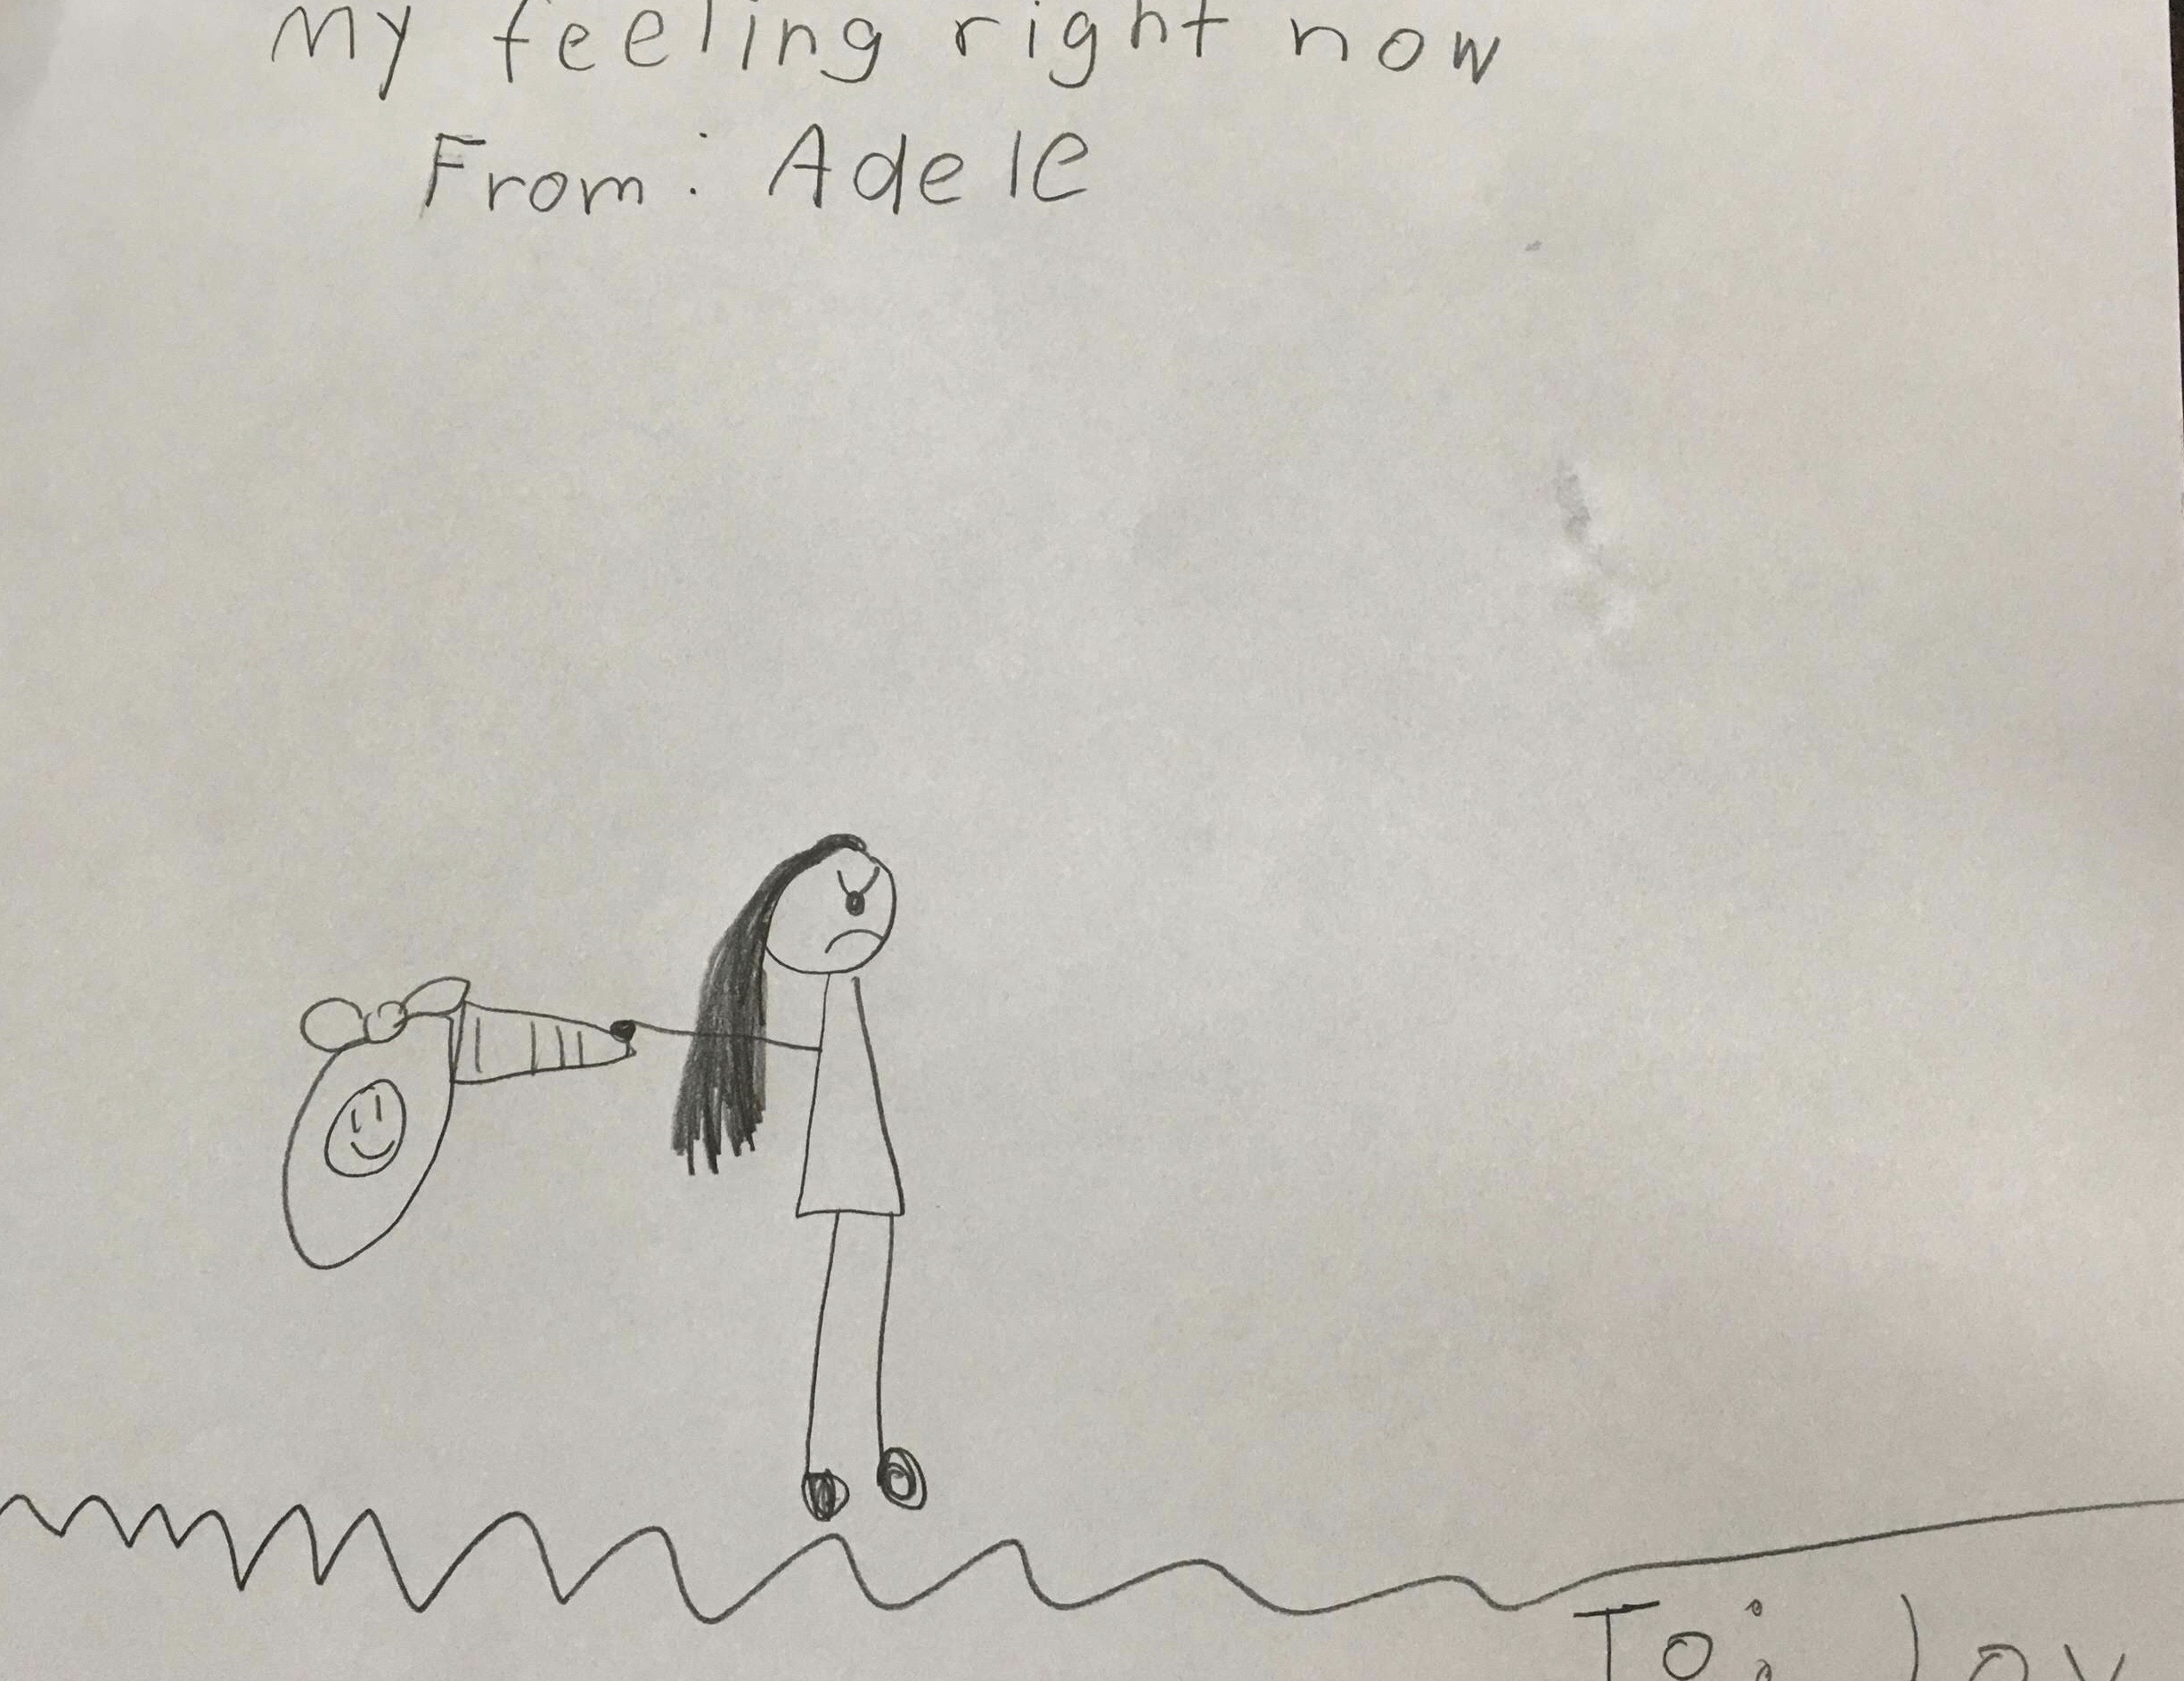 My feeling right now
From: Adele
To: